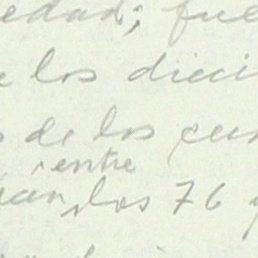 edad; fue
los dieci
de los cua
entre
los 76